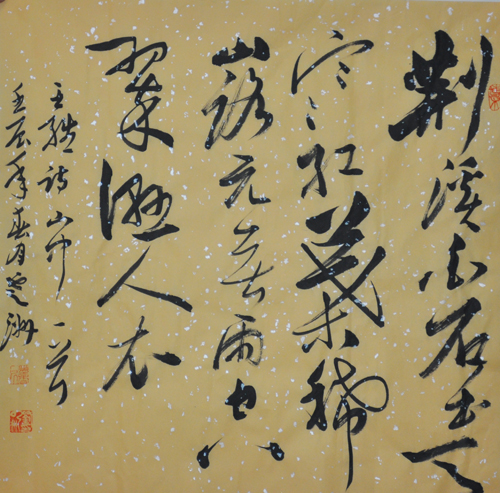 荆溪白石出天
寒红葉稀
山路元無雨空
翠濕人衣
王維詩山中一首
壬辰年春月